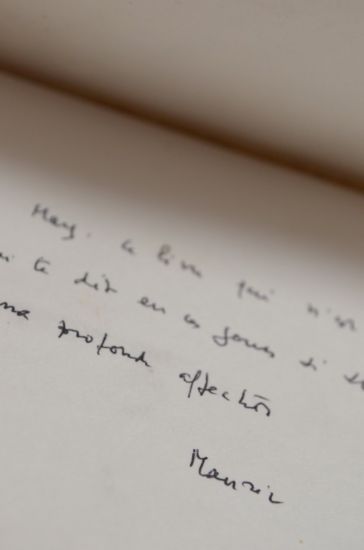 Mary. Ce livre qui n'est
te dire en ces jours si
ma profonde affection
Maurice